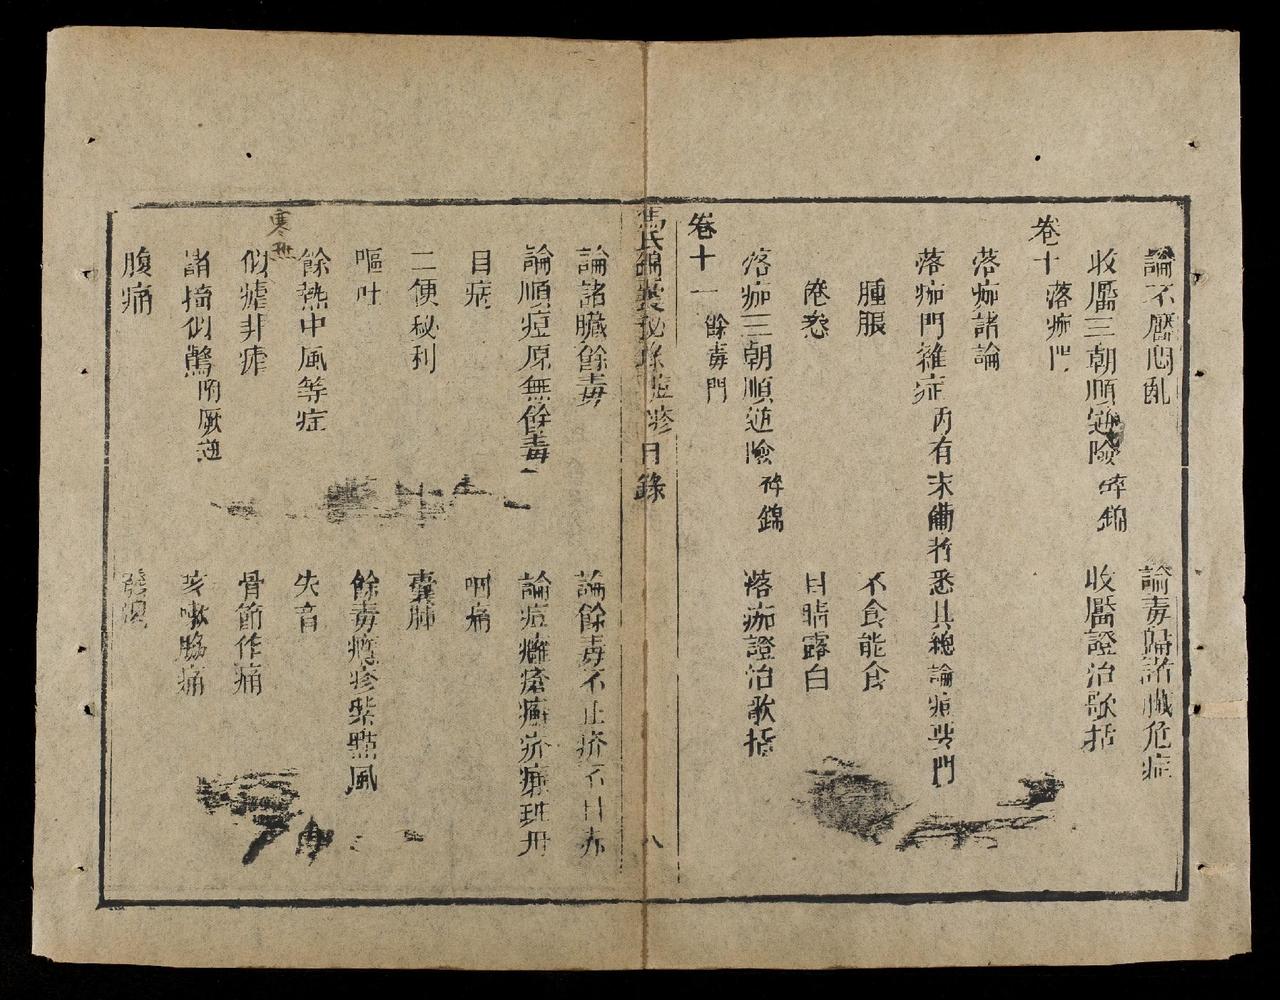 論不靨悶亂　論毒歸諸臟危症
收靨三朝順逆險　碎錦　收靨證治歌括
卷十　落痂門
落痂諸論
落痂門雜症　內有未備者悉具總論痘要門
腫脹　不食能食
倦怠　目睛露白
落痂三朝順逆險　碎錦　落痂證治歌括
卷十一　餘毒門
馮氏錦囊秘錄痘疹目錄　八
論諸臟餘毒　論餘毒不止疥
論順痘原無餘毒　論痘癰瘡癤疥癩
目疾　咽痛
二便秘利　囊腫
嘔吐　餘毒癮疹紫雲風
餘熱中風等症　失音
似瘧非瘧　骨節作痛
寒
諸搐似驚　厥逆　咳嗽脇痛
腹痛